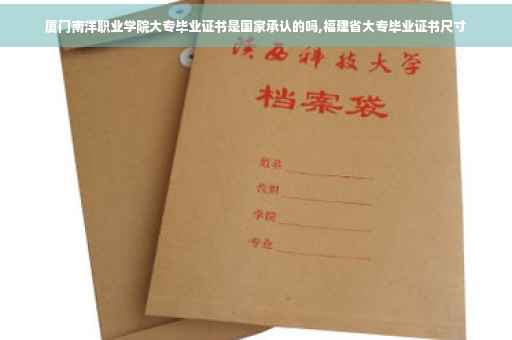 厦门南洋职业学院大专毕业证书是国家承认的吗,福建省大专毕业证书尺寸
陕西科技大学
档案袋
姓名
学院
专业